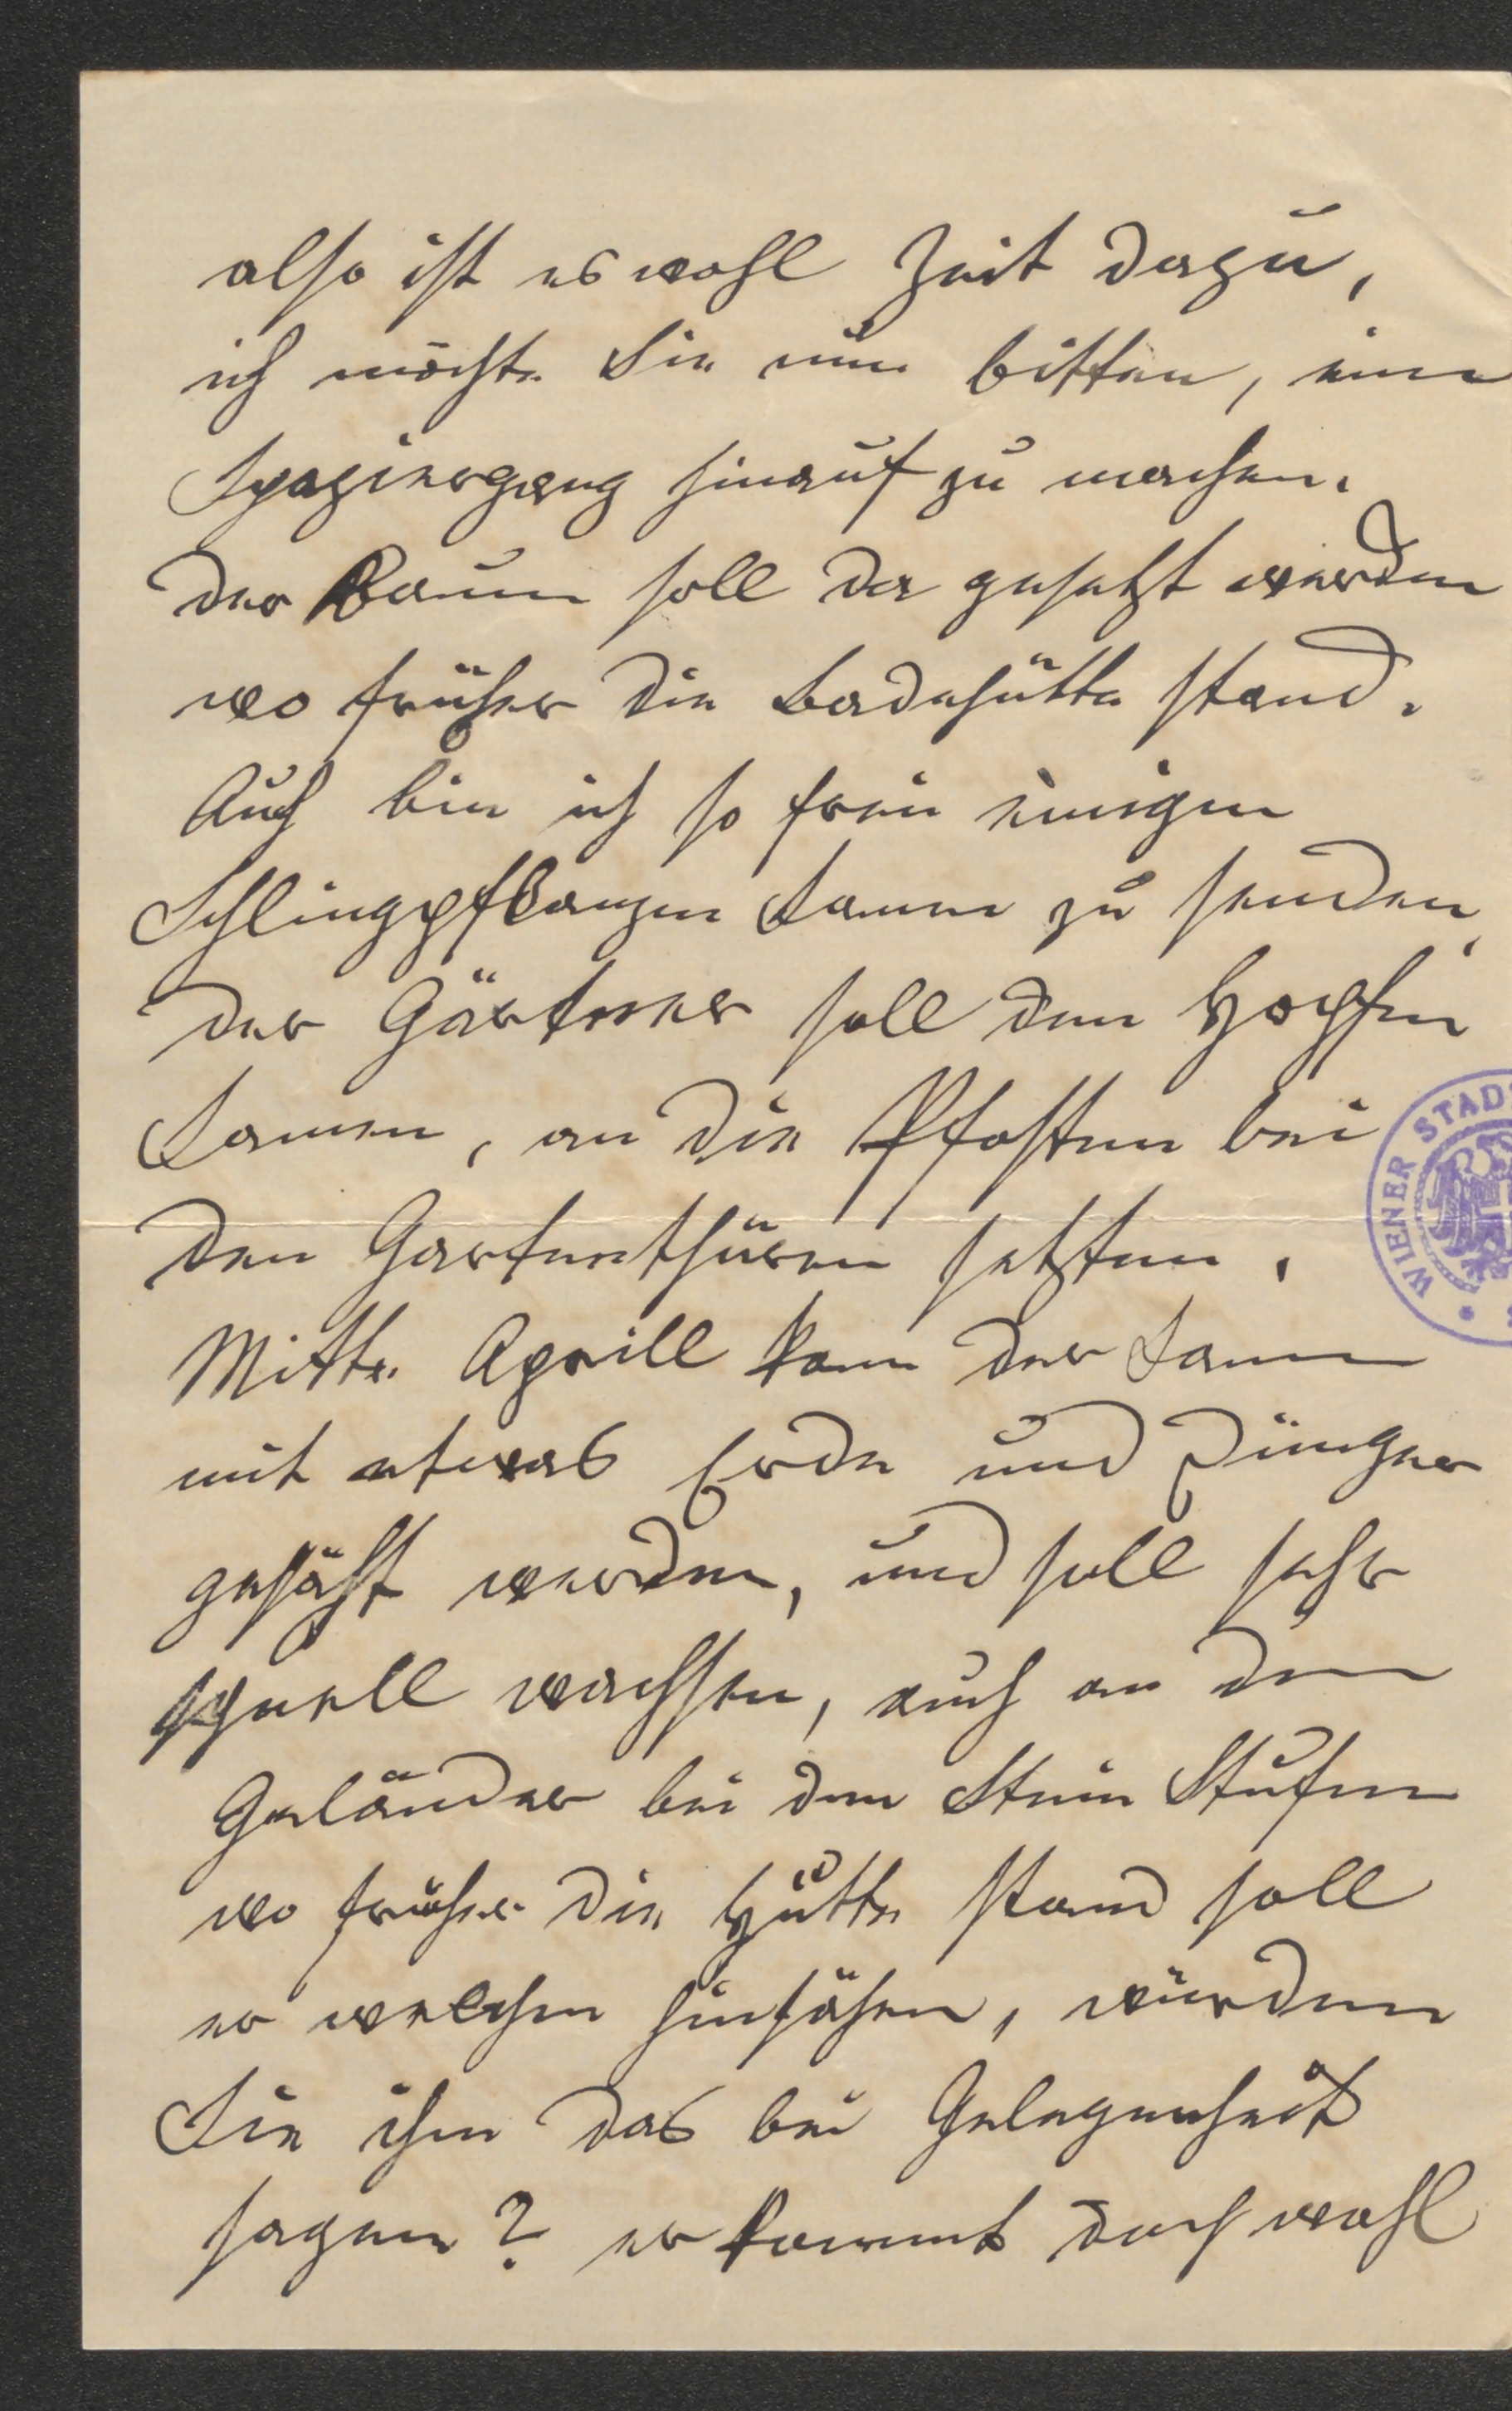 also ist es wohl Zeit dazu,
ich möchte Sie nun bitten, einen
Spaziergang hinauf zu machen.
Der Baum soll da gesetzt werden
wo früher die Badehütte stand.
Auch bin ich so frei einigen
Schlingpflanzen Samen zu senden,
der Gärtner soll den Hopfen
Samen, an die Pfosten bei
den Gartenthüren setzten.
Mitte Aprill kann der Samen
mit etwas Erde und Dünger
gesäht werden, und soll sehr
schnell wachsen, auch an dem
Geländer bei den Stein Stufen
wo früher die Hütte stand soll
er welchen hinsähen, würden
Sie ihm das bei Gelegenheit
sagen? er kommt doch wohl
WIENER STAD